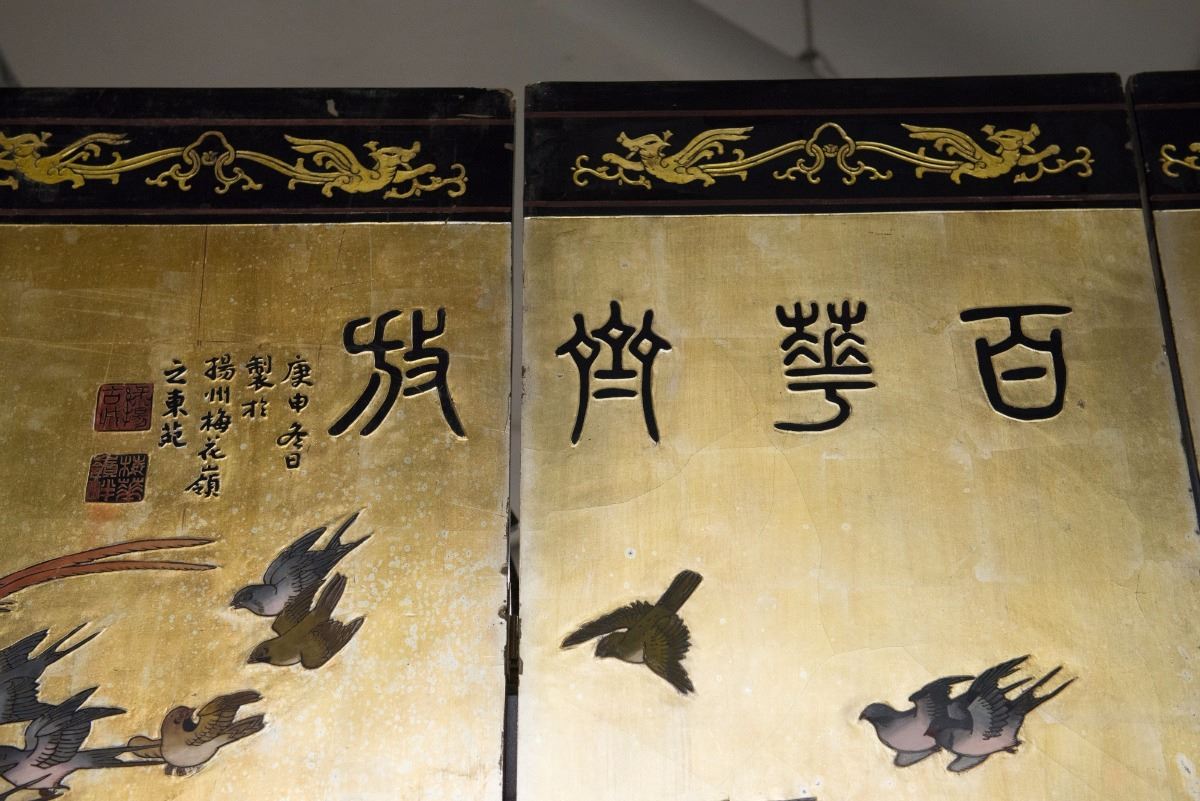 百華齊放
庚申冬日
製於
揚州梅花嶺
之東苑